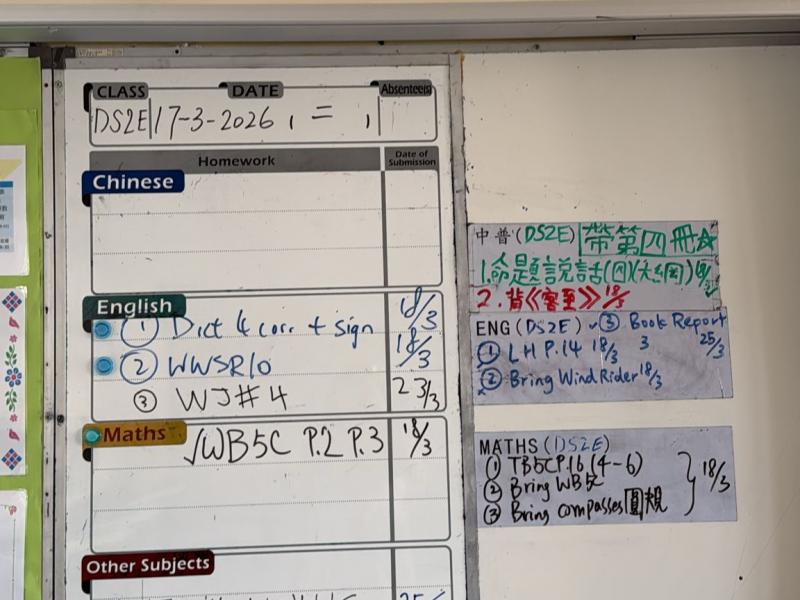 CLASS DATE Absentee(s)
DS2E 17-3-2026, 二,
Homework Date of Submission
Chinese
English
① Dict 4 corr + sign 18/3
② WWSR10 18/3
③ WJ#4 23/3
Maths
√WB5C P.2 P.3 18/3
Other Subjects
中普(DS2E) 帶第四冊☆
1.命題說話(四)(大綱)
2.背《客至》18/3
ENG (DS2E) ③ Book Report 3 25/3
① LH P.14 18/3
② Bring Wind Rider 18/3
MATHS (DS2E)
① TB5C P.16 (4-6)
② Bring WB5C
③ Bring compasses 圓規 } 18/3